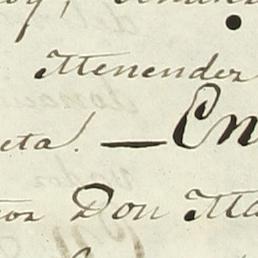 Menendez
eta. — En
tor Don Ma